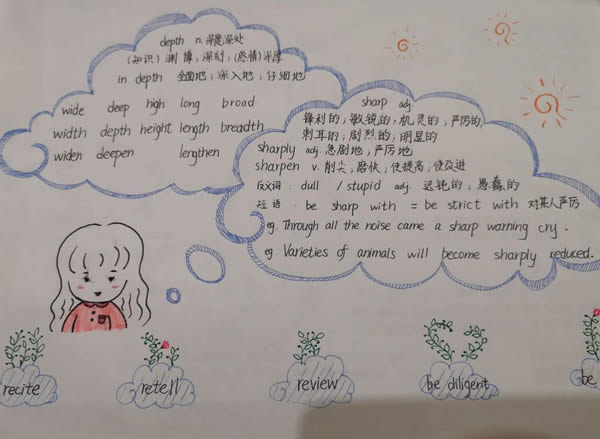 depth n. 深度深处
(知识)渊博;深刻;(感情)深厚
in depth 全面地;深入地;仔细地
wide deep high long broad
width depth height length breadth
widen deepen lengthen
sharp adj
锋利的;敏锐的;机灵的;严厉的;
刺耳的;剧烈的;明显的
sharply adj. 急剧地;严厉地
sharpen v. 削尖;磨快;使提高;使改进
反义词: dull / stupid adj. 迟钝的;愚蠢的
短语: be sharp with = be strict with 对某人严厉
eg. Through all the noise came a sharp warning cry.
eg. Varieties of animals will become sharply reduced.
recite retell review be diligent be